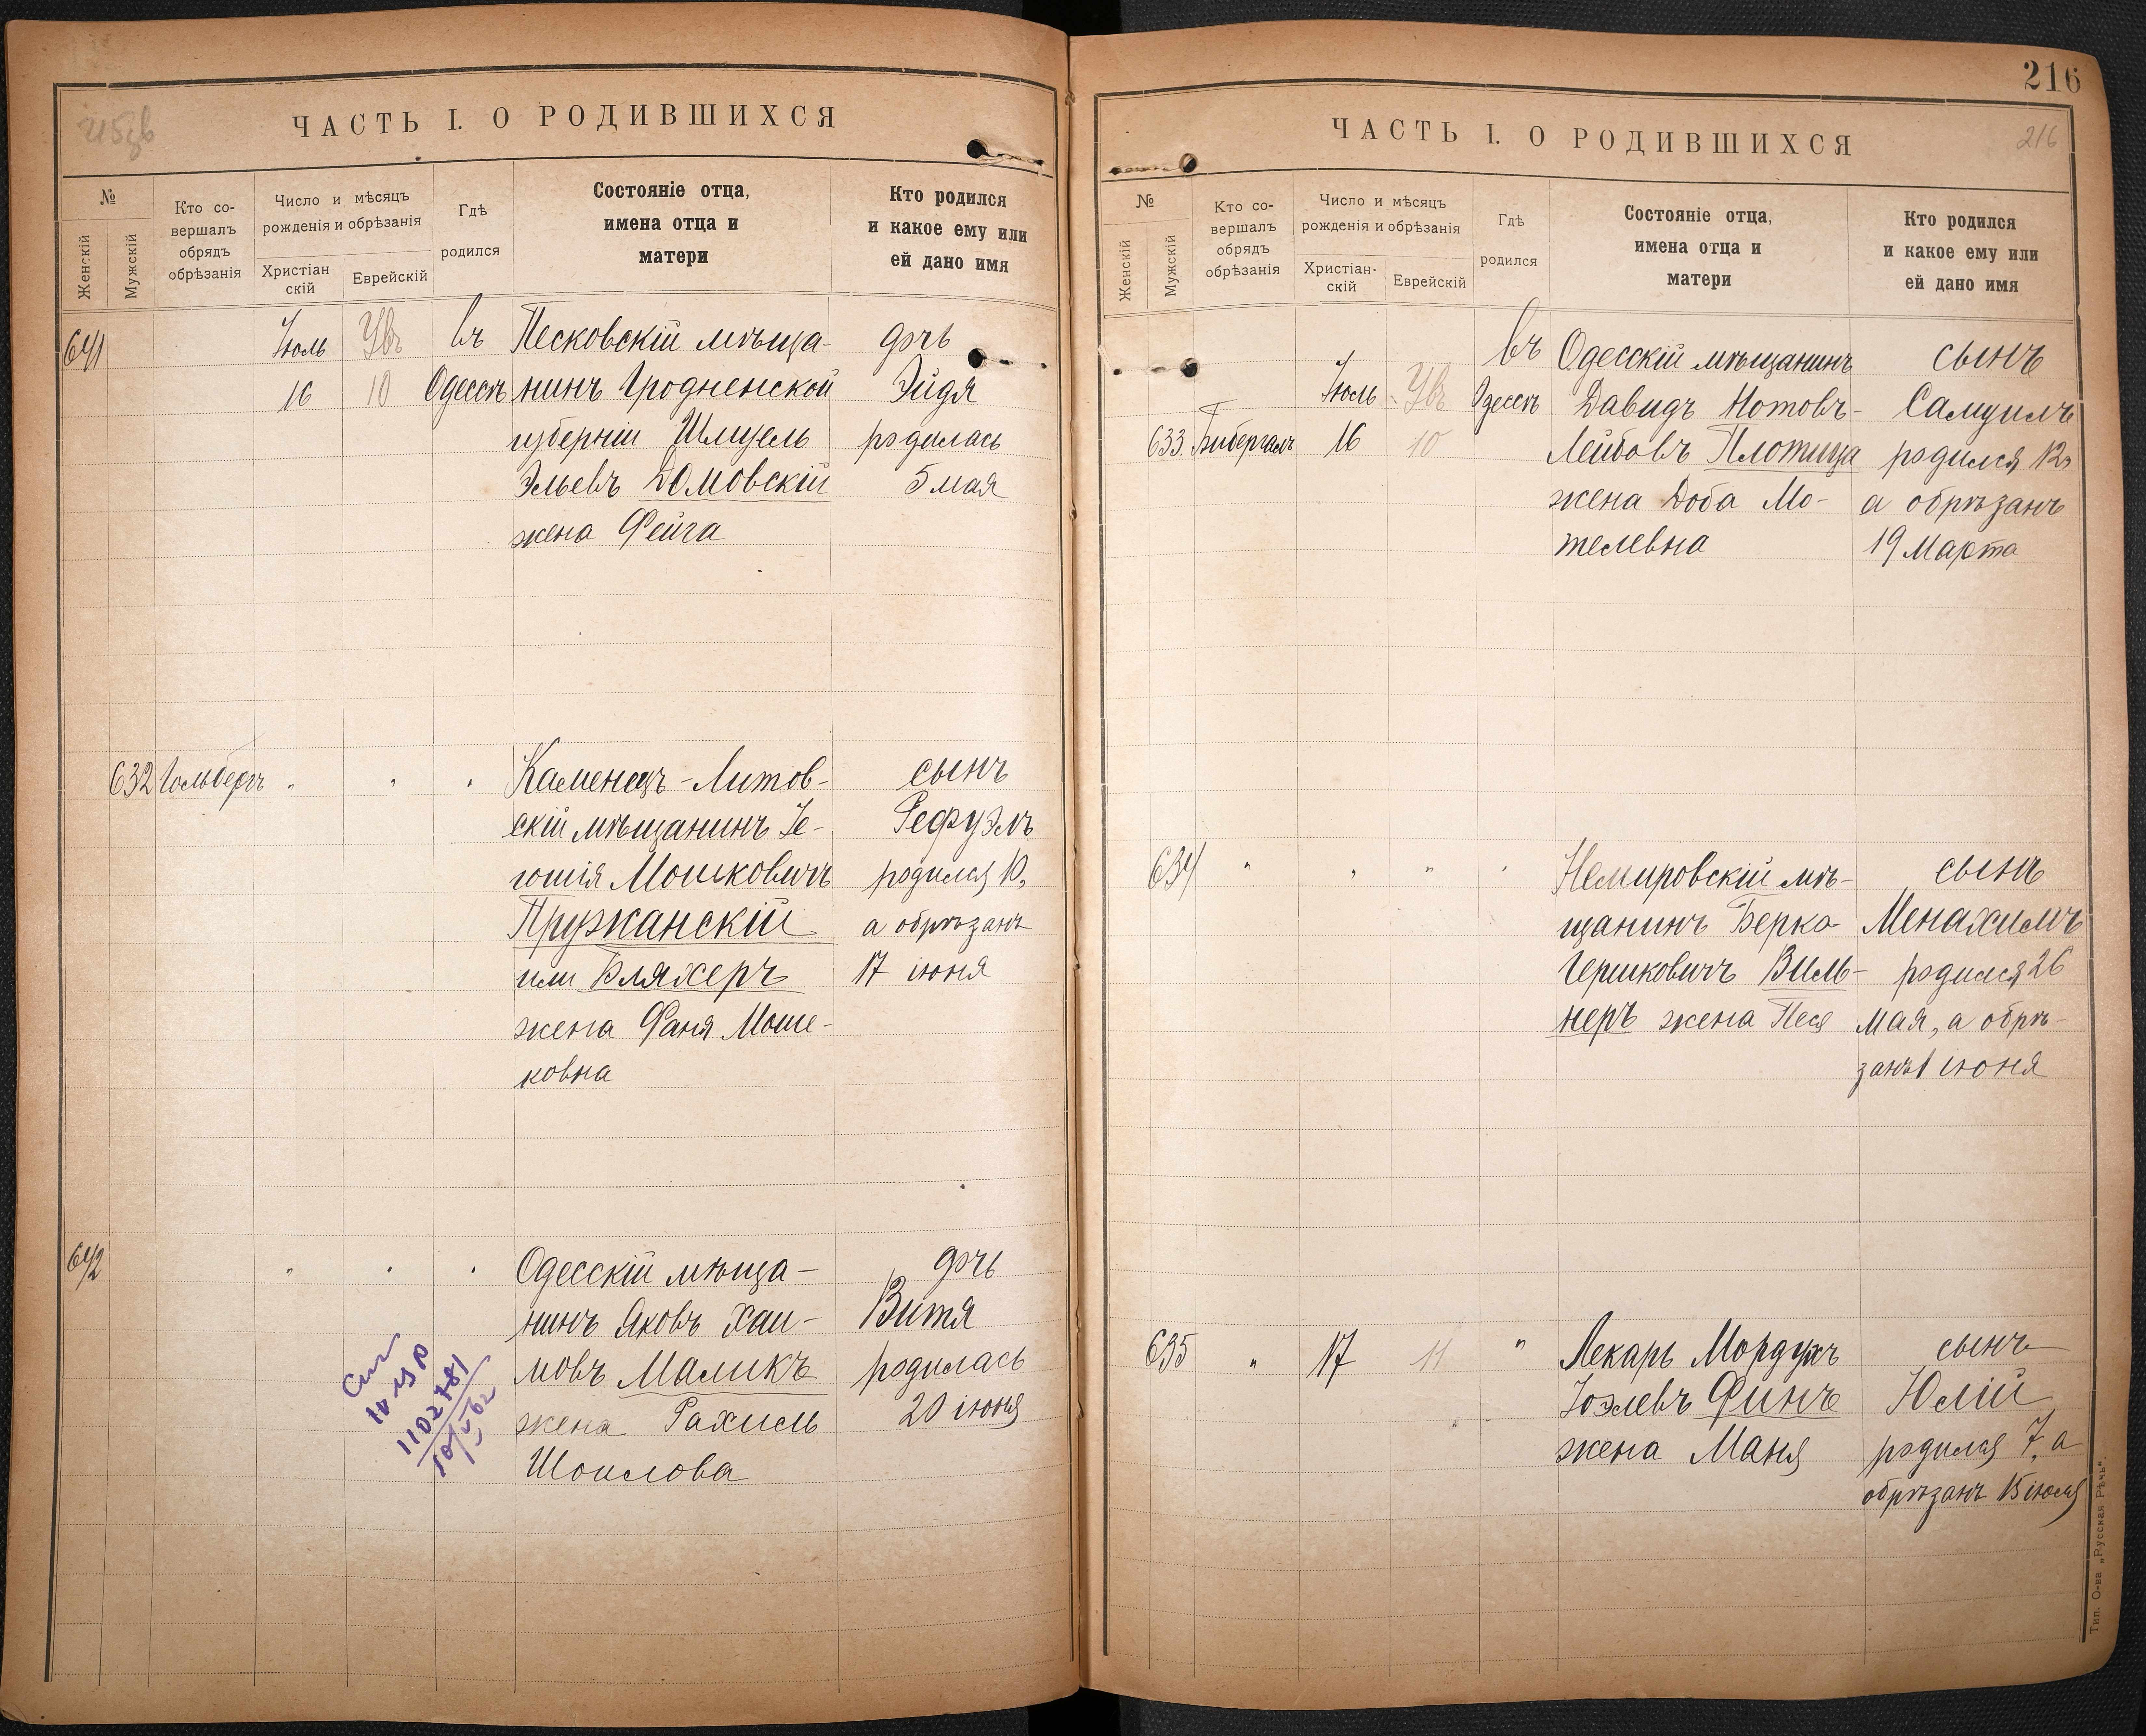 215 об
ЧАСТЬ I. О РОДИВШИХСЯ
№
Женскій
Мужскій
Кто со-
вершалъ
обрядъ
обрѣзанія
Число и мѣсяцъ
рожденія и обрѣзанія
Христіан
скій
Еврейскій
Гдѣ
родился
Состояніе отца,
имена отца и
матери
Кто родился
и какое ему или
ей дано имя
641
Іюль
16
Ув
10
въ
Одессѣ
Песковскій мѣща-
нинъ Гродненской
губерніи Шмуель
Эльевъ Домовскій
жена Фейга
дочь
Эйдя
родилась
5 мая
632 Гольбергъ " " "
Каменецъ-Литов-
скій мѣщанинъ Іе-
гошія Мошковичъ
Пружанскій
или Бляхеръ
жена Фаня Мош-
ковна
сынъ
Рефуэлъ
родился 10,
а обрѣзанъ
17 іюня
642 " " "
Одесскій мѣща-
нинъ Яковъ Хаи-
мовъ Маликъ
жена Рахиль
Шоилова
дочь
Витя
родилась
20 іюня
1102781
216
ЧАСТЬ I. О РОДИВШИХСЯ
216
№
Женскій
Мужскій
Кто со-
вершалъ
обрядъ
обрѣзанія
Число и мѣсяцъ
рожденія и обрѣзанія
Христіан-
скій
Еврейскій
Гдѣ
родился
Состояніе отца,
имена отца и
матери
Кто родился
и какое ему или
ей дано имя
633. Бибергалъ
Іюль
16
Ув
10
въ
Одессѣ
Одесскій мѣщанинъ
Давидъ Нотовъ-
Лейбовъ Плотица
жена Доба Мо-
телевна
сынъ
Самуилъ
родился 12,
а обрѣзанъ
19 Марта
634 " " " "
Немировскій мѣ-
щанинъ Берко
Гершковичъ Виль-
неръ жена Песя
сынъ
Менахимъ
родился 26
мая, а обрѣ-
занъ 1 іюня
635 " 17 11 "
Лекарь Мордухъ
Іоэлевъ Финъ
жена Маня
сынъ
Юлій
родился 7, а
обрѣзанъ 15 іюля
Тип. О-ва „Русская Рѣчь".